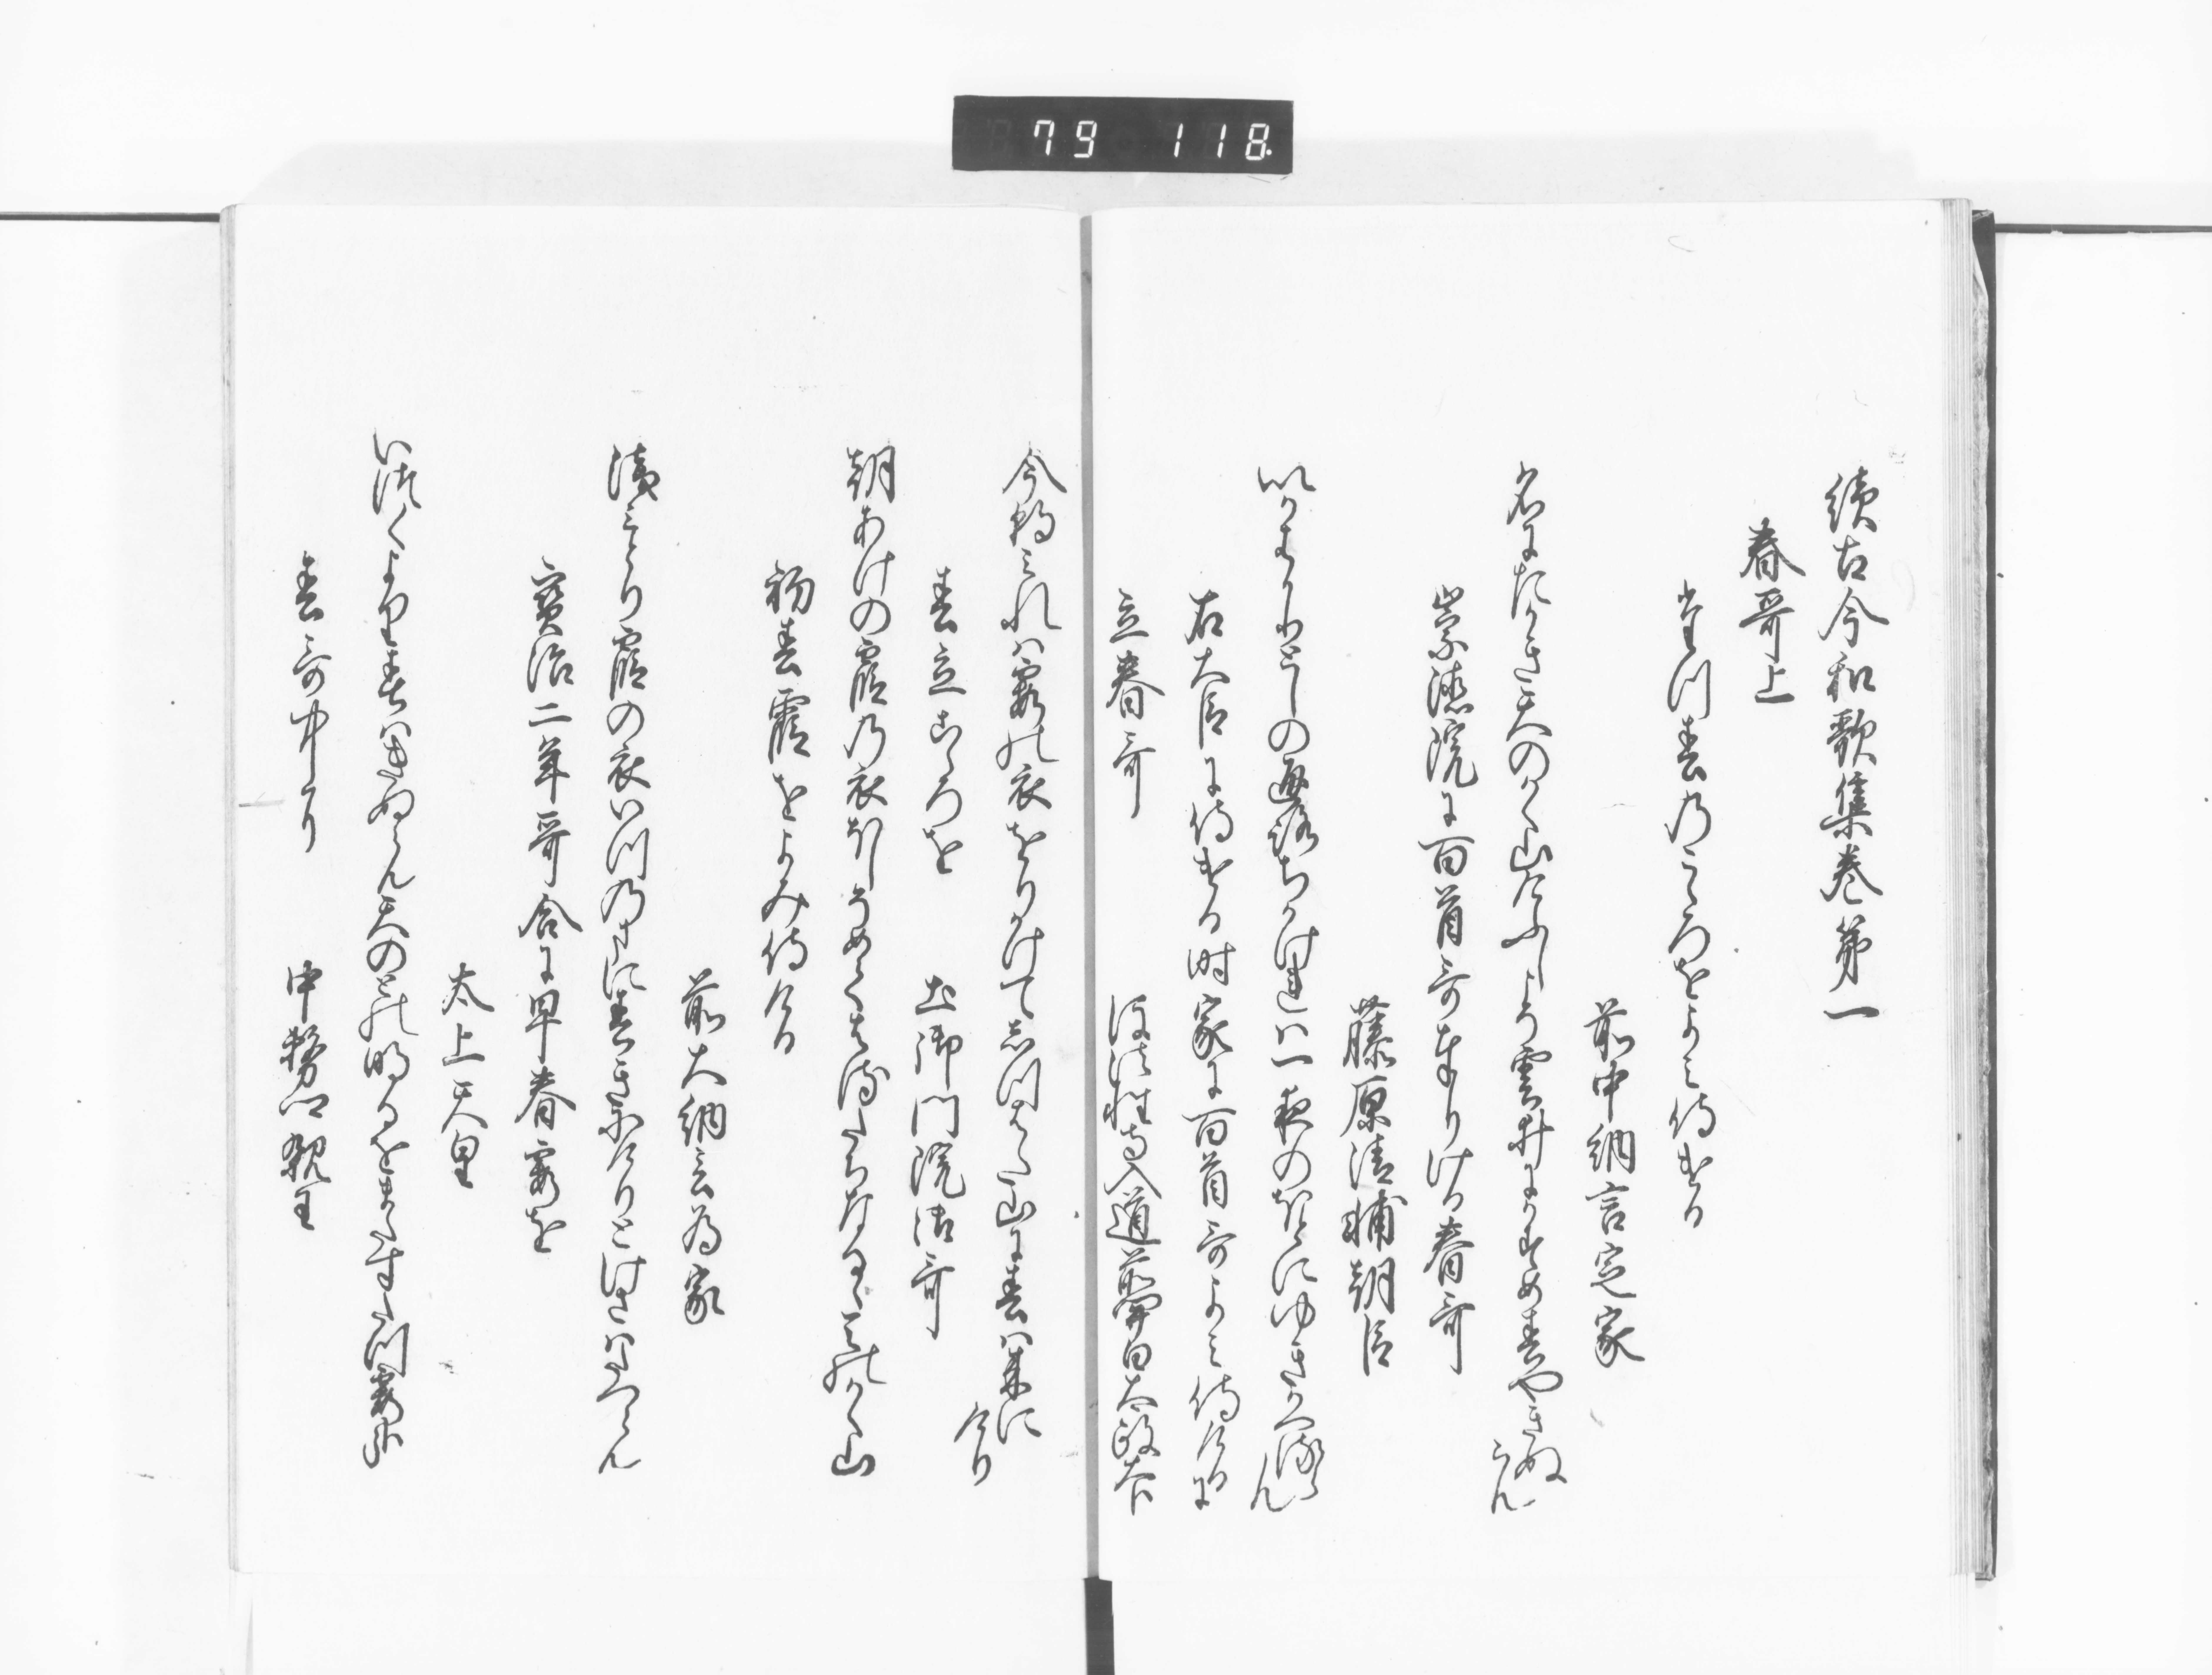 79 118
續古今和歌集巻第一
春哥上
たつ春のこゝろをよみ侍ける
前中納言定家
名にたかき天のかく山けふしよう雲井にかすめ春やきぬらん
崇徳院に百首哥奉りける春哥
藤原清輔朝臣
いかはかりとしの通路ちかけれは一夜のほとにゆきかへるらん
右大臣に侍ける時家に百首哥よみ侍けるに
立春哥
後法性寺入道前関白太政大臣
今朝みれは霞の衣をりかけてしつはた山に春は来にけり
春立こゝろを
土御門院御哥
朝あけの霞の衣ほしそめて春たちなるゝ天のかく山
初春霞をよみ侍ける
前大納言為家
浅みとり霞の衣いつのまに春きにけりとけさはたつらん
寶治二年哥合に早春霞を
太上天皇
いつくより春はきぬらん天のとの明るをまたすたつ霞哉
春哥中に
中務卿親王